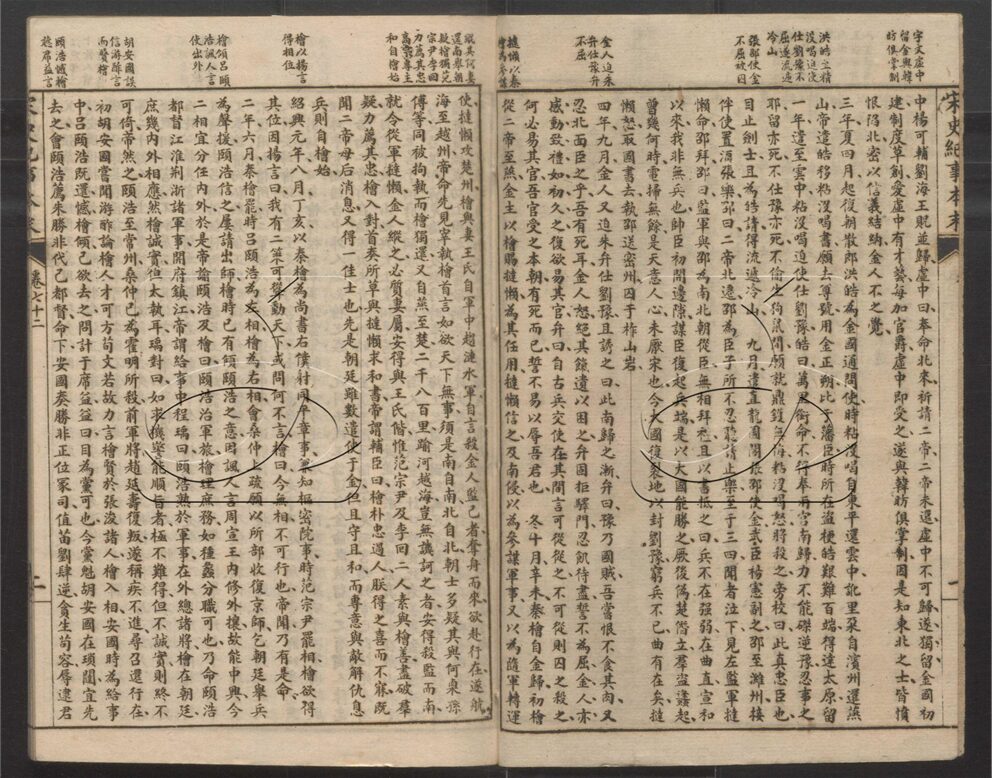 宇文虛中
留金與韓
昉俱掌制
洪皓立精
沒喝迫使
仕劉豫不
屈遂流遞
冷山
張邵使金
不屈被囚
金人迫朱
弁仕豫弁
不屈
撻懶以秦
檜為參謀
宋史紀事本末
中楊可輔劉海王貺並歸虛中曰奉命北來祈請二帝二帝未還虛中不可歸遂獨留金國初
建制度草創愛虛中有才藝每加官爵虛中即受之遂與韓昉俱掌制因是知東北之士皆憤
恨陷北密以信義結納金人不之覺
三年夏四月起復朝散郎洪皓為金國通問使時粘沒喝自東平還雲中訛里朶自濱州還燕
山帝遣皓移粘沒喝書願去尊號用金正朔比于藩臣時所在盜梗皓艱難百端得達太原留
一年遣至雲中粘沒喝迫使仕劉豫皓曰萬里銜命不得奉兩宮南歸力不能磔逆豫忍事之
耶留亦死不仕豫亦死不偷生狗鼠間願就鼎鑊無悔粘沒喝怒將殺之旁校曰此真忠臣也
目止劍士且為皓請得流遞冷山　九月遣直龍圖閣張邵使金武臣楊憲副之邵至濰州接
伴使置酒張樂邵曰二帝北遷邵為臣子所不忍聽請止樂至于三四聞者泣下見左監軍撻
懶命邵拜邵曰監軍與邵為南北朝從臣無相拜禮且以書抵之曰兵不在强弱在曲直宣和
以來我非無兵也帥臣初開邊隙謀臣復起兵端是以大國能勝之厥後僞楚僭立羣盜蠭起
曾幾何時電掃無餘是天意人心未厭宋也今大國復裂地以封劉豫窮兵不已曲有在矣撻
懶怒取國書去執邵送密州囚于柞山砦
四年九月金人又迫朱弁仕劉豫且誘之曰此南歸之漸弁曰豫乃國賊吾嘗恨不食其肉又
忍北面臣之乎吾有死耳金人怒絕其餼遺以困之弁固拒驛門忍飢待盡誓不為屈金人亦
感動致禮如初久之復欲易其官弁曰自古兵交使在其間言可從從之不可從則囚之殺之
何必易其官吾官受之本朝有死而已誓不易以辱吾君也　冬十月辛未秦檜自金歸初檜
從二帝至燕金主以檜賜撻懶為其任用撻懶信之及南侵以為參謀軍事又以為隨軍轉運
一
疑其何妻
還南舉朝
疑檜獨范
宗尹李回
力薦其忠
高宗專主
和自檜始
檜以揚言
得相位
檜傾呂頤
浩諷人言
使出外
胡安國誤
信游酢言
而賢檜
頤浩憾檜
愁席益言
卷七十二
使撻懶攻楚州檜與妻王氏自軍中趨漣水軍自言殺金人監己者奪舟而來欲赴行在遂航
海至越州帝命先見宰執檜首言如欲天下無事須是南自南北自北朝士多疑其與何㮚孫
傅等同被拘執而檜獨還又自燕至楚二千八百里踰河越海豈無譏訶之者安得殺監而南
就令從軍撻懶金人縱之必質妻屬安得與王氏偕惟范宗尹及李回二人素與檜善盡破羣
疑力薦其忠檜入對首奏所草與撻懶求和書帝謂輔臣曰檜朴忠過人朕得之喜而不寐既
聞二帝母后消息又得一佳士也先是朝廷雖數遣使于金但且守且和而專意與敵解仇息
兵則自檜始
紹興元年八月丁亥以秦檜為尚書右僕射同平章事兼知樞密院事時范宗尹罷相檜欲得
其位因揚言曰我有二策可聳動天下或問何不言檜曰今無相不可行也帝聞乃有是命
二年六月秦檜罷時呂頤浩為左相檜為右相會桑仲上疏願以所部收復京師乞朝廷舉兵
為聲援頤浩信之屢請出師檜時已有傾頤浩之意因諷人言周宣王內修外攘故能中興今
二相宜分任內外於是帝諭頤浩及檜曰頤浩治軍旅檜理庶務如種蠡分職可也乃命頤浩
都督江淮荊浙諸軍事開府鎮江帝謂給事中程瑀曰頤浩熟於軍事在外總諸將檜在朝廷
庶幾內外相應然檜誠實但太執耳瑀對曰如求機警能順旨者極不難得但不誠實則終不
可倚帝然之頤浩至常州桑仲已為霍明所殺前軍將趙延壽復叛遂稱疾不進尋召還行在
初胡安國嘗聞游酢論檜人才可方荀文若故力言檜賢於張浚諸人檜入相安國時為給事
中呂頤浩既還憾檜傾己欲去之問計于席益益曰目為黨可也今黨魁胡安國在瑣闥宜先
去之會頤浩薦朱勝非代己都督命下安國奏勝非正位冢司值苗劉肆逆貪生苟容辱逮君
二